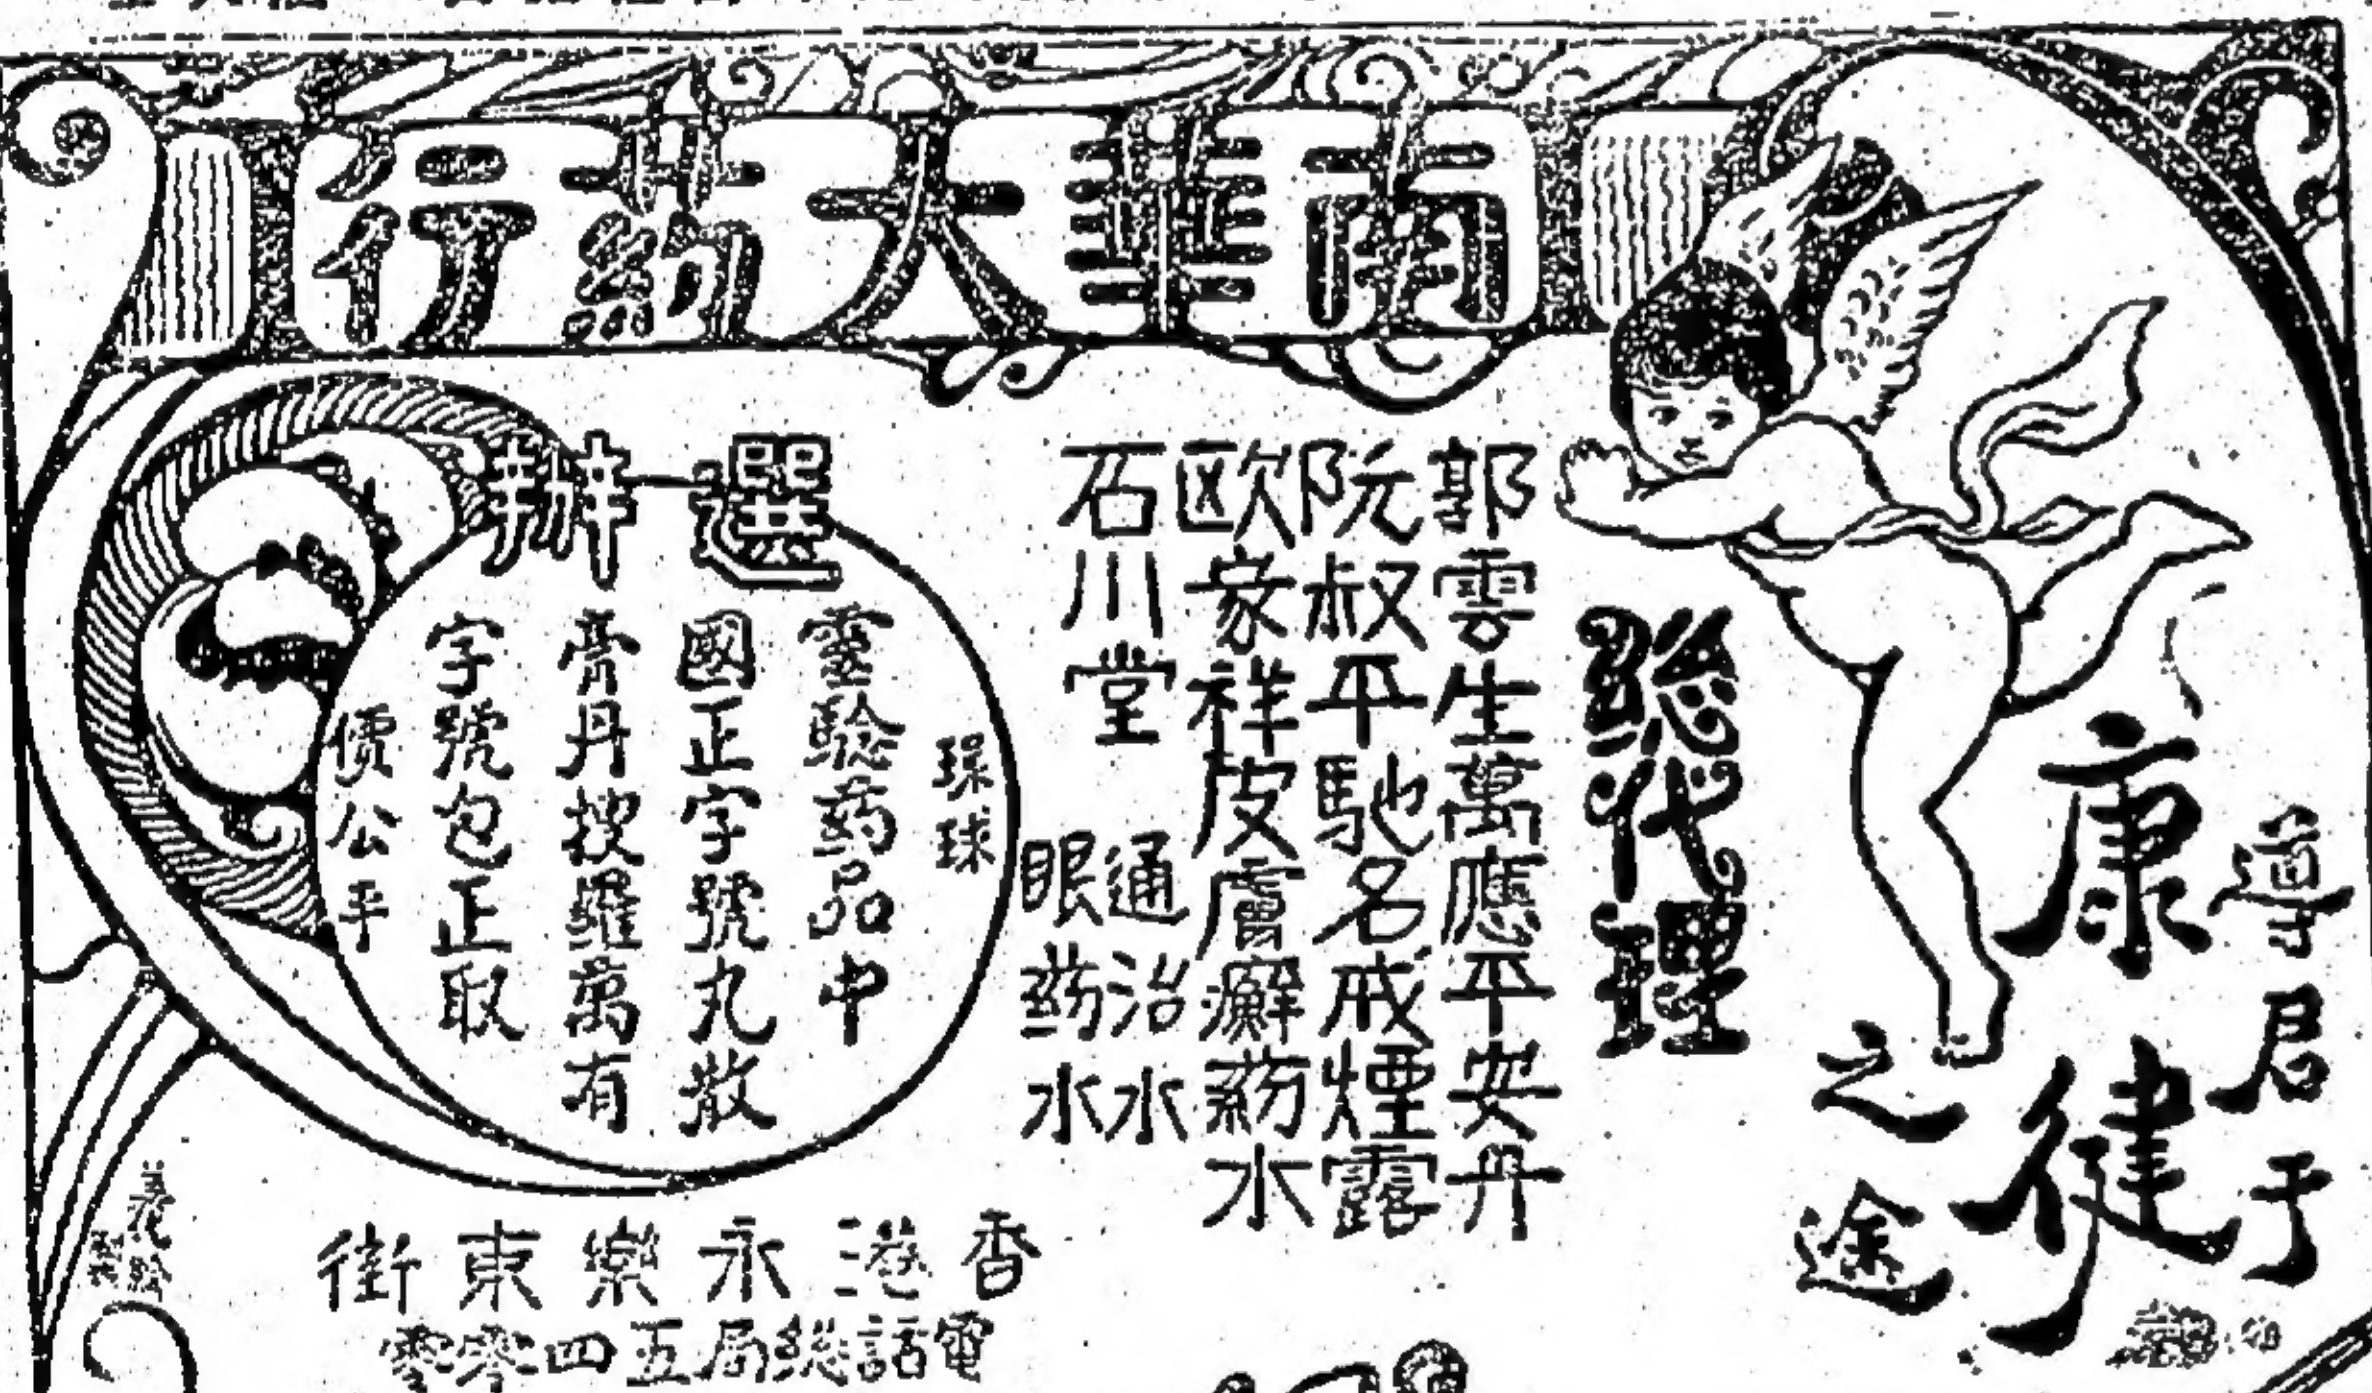 南華大葯行
導君于
康健
之途
総代理
郭雲生萬應平安丹
阮叔平馳名戒煙露
欧家祥皮膚癬葯水
石川堂
通治水
眼葯水
選辦
環球
靈驗葯品中
國正字號丸散
膏丹搜羅萬有
字號包正取
價公平
香港永樂東街
電話総局五四零零